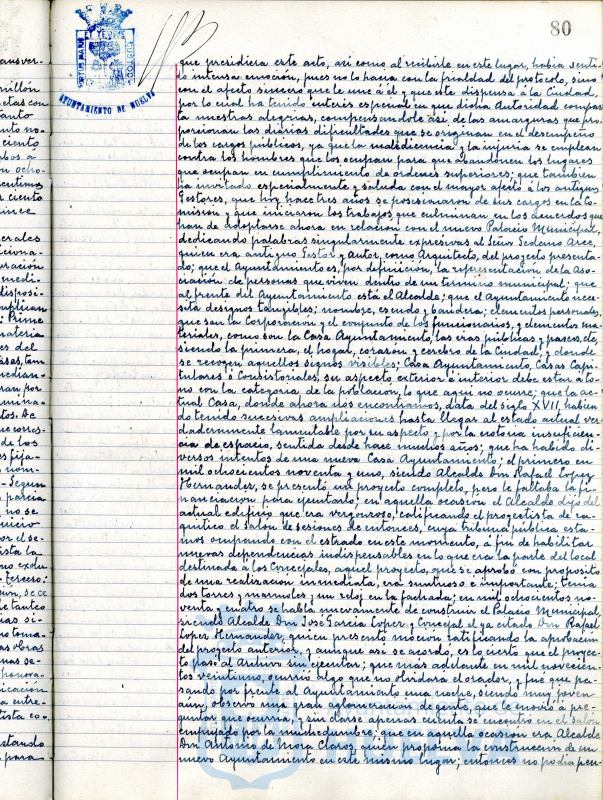 80
AYUNTAMIENTO DE HUELVA
que presidiera este acto, así como al recibirle en este lugar, había senti-
do intensa emoción, pues no lo hacía con la frialdad del protocolo, sino
con el afecto sincero que le une a él y que este dispensa a la Ciudad,
por lo cual ha tenido interés especial en que dicha Autoridad compar-
ta nuestras alegrías, compensándole así de las amarguras que pro-
porcionan las diarias dificultades que se originan en el desempeño
de los cargos públicos, ya que la maledicencia y la injuria se emplean
contra los hombres que los ocupan para que abandonen los lugares
que ocupan en cumplimiento de órdenes superiores; que también
ha invitado especialmente y saluda con el mayor afecto á los antiguos
Gestores, que hoy hace tres años se posesionaron de sus cargos en la Co-
misión y que iniciaron los trabajos que culminan en los acuerdos que
han de adoptarse ahora en relación con el nuevo Palacio Municipal,
dedicando palabras singularmente expresivas al Señor Sedano Arce,
quien era antiguo Gestor y Autor, como Arquitecto, del proyecto presenta-
do; que el Ayuntamiento es, por definición, la representación de la Aso-
ciación de personas que viven dentro de un término municipal; que
al frente del Ayuntamiento está el Alcalde; que el Ayuntamiento nece-
sita designos tangibles; nombre, escudo y bandera; elementos personales,
que son la Corporación y el conjunto de los funcionarios, y elementos ma-
teriales, como son la Casa Ayuntamiento, las eras públicas y paseos, etc,
siendo la primera, el hogar, corazón y cerebro de la Ciudad, y donde
se recogen aquellos signos visibles; Casa Ayuntamiento, Casas Capi-
tulares ó Consistoriales, su aspecto exterior é interior debe estar a to-
no con la categoría de la población, lo que aquí no ocurre; que la ac-
tual Casa, donde ahora nos encontramos, data del siglo XVII, habien-
do tenido sucesivas ampliaciones hasta llegar al estado actual ver-
daderamente lamentable por su aspecto y por la notoria insuficien-
cia de espacio, sentida desde hace muchos años; que ha habido di-
versos intentos de una nueva Casa Ayuntamiento; el primero en
mil ochocientos noventa y uno, siendo Alcalde Don Rafael Lopez
Hernandez, se presentó un proyecto completo, pero le faltaba la fi-
nanciación para ejecutarlo; en aquella ocasión el Alcalde dijo del
actual edificio que era vergonzoso, calificando el proyectista de ra-
quítico el salón de sesiones de entonces, cuya tribuna pública esta-
mos ocupando con el estrado en este momento, a fin de habilitar
nuevas dependencias indispensables en lo que era la parte del local
destinada á los Concejales, aquel proyecto, que se aprobó con propósito
de una realización inmediata, era suntuoso e importante; tenía
dos torres y mármoles y un reloj en la fachada; en mil ochocientos no-
venta y cuatro se habla nuevamente de construir el Palacio Municipal,
siendo Alcalde Don José García Lopez y Concejal el ya citado Don Rafael
Lopez Hernandez, quien presentó moción ratificando la aprobación
del proyecto anterior, y aunque así se acordó, es lo cierto que el proyec-
to pasó al Archivo sin ejecutar; que más adelante en mil novecien-
tos veintiuno, ocurrió algo que no olvidará el orador, y fué que pa-
sando por frente al Ayuntamiento una noche, siendo muy joven
aún, observó una gran aglomeración de gente, que le movió á pre-
guntar que ocurría, y sin darse apenas cuenta se encontró en el salón
empujado por la muchedumbre; que en aquella ocasión era Alcalde
Don Antonio de Mora Claros, quien proponía la construcción de un
nuevo Ayuntamiento en este mismo lugar; entonces no podía pen-